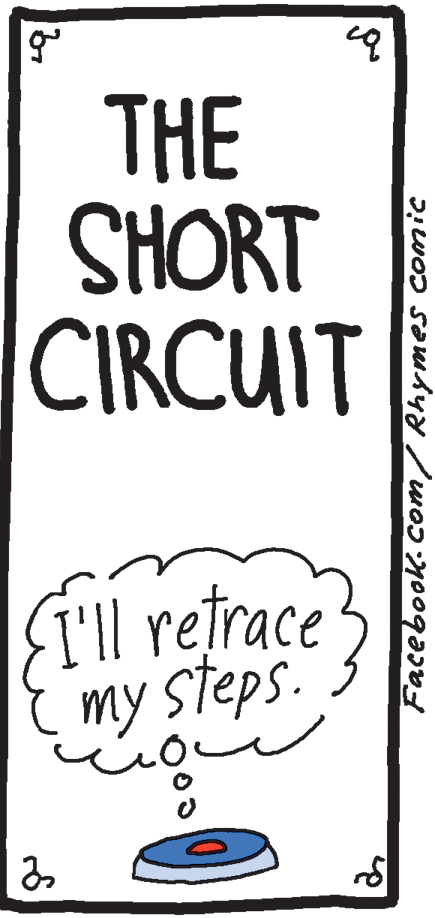 THE
SHORT
CIRCUIT
I'll retrace
my steps.
Facebook.com/Rhymes comic